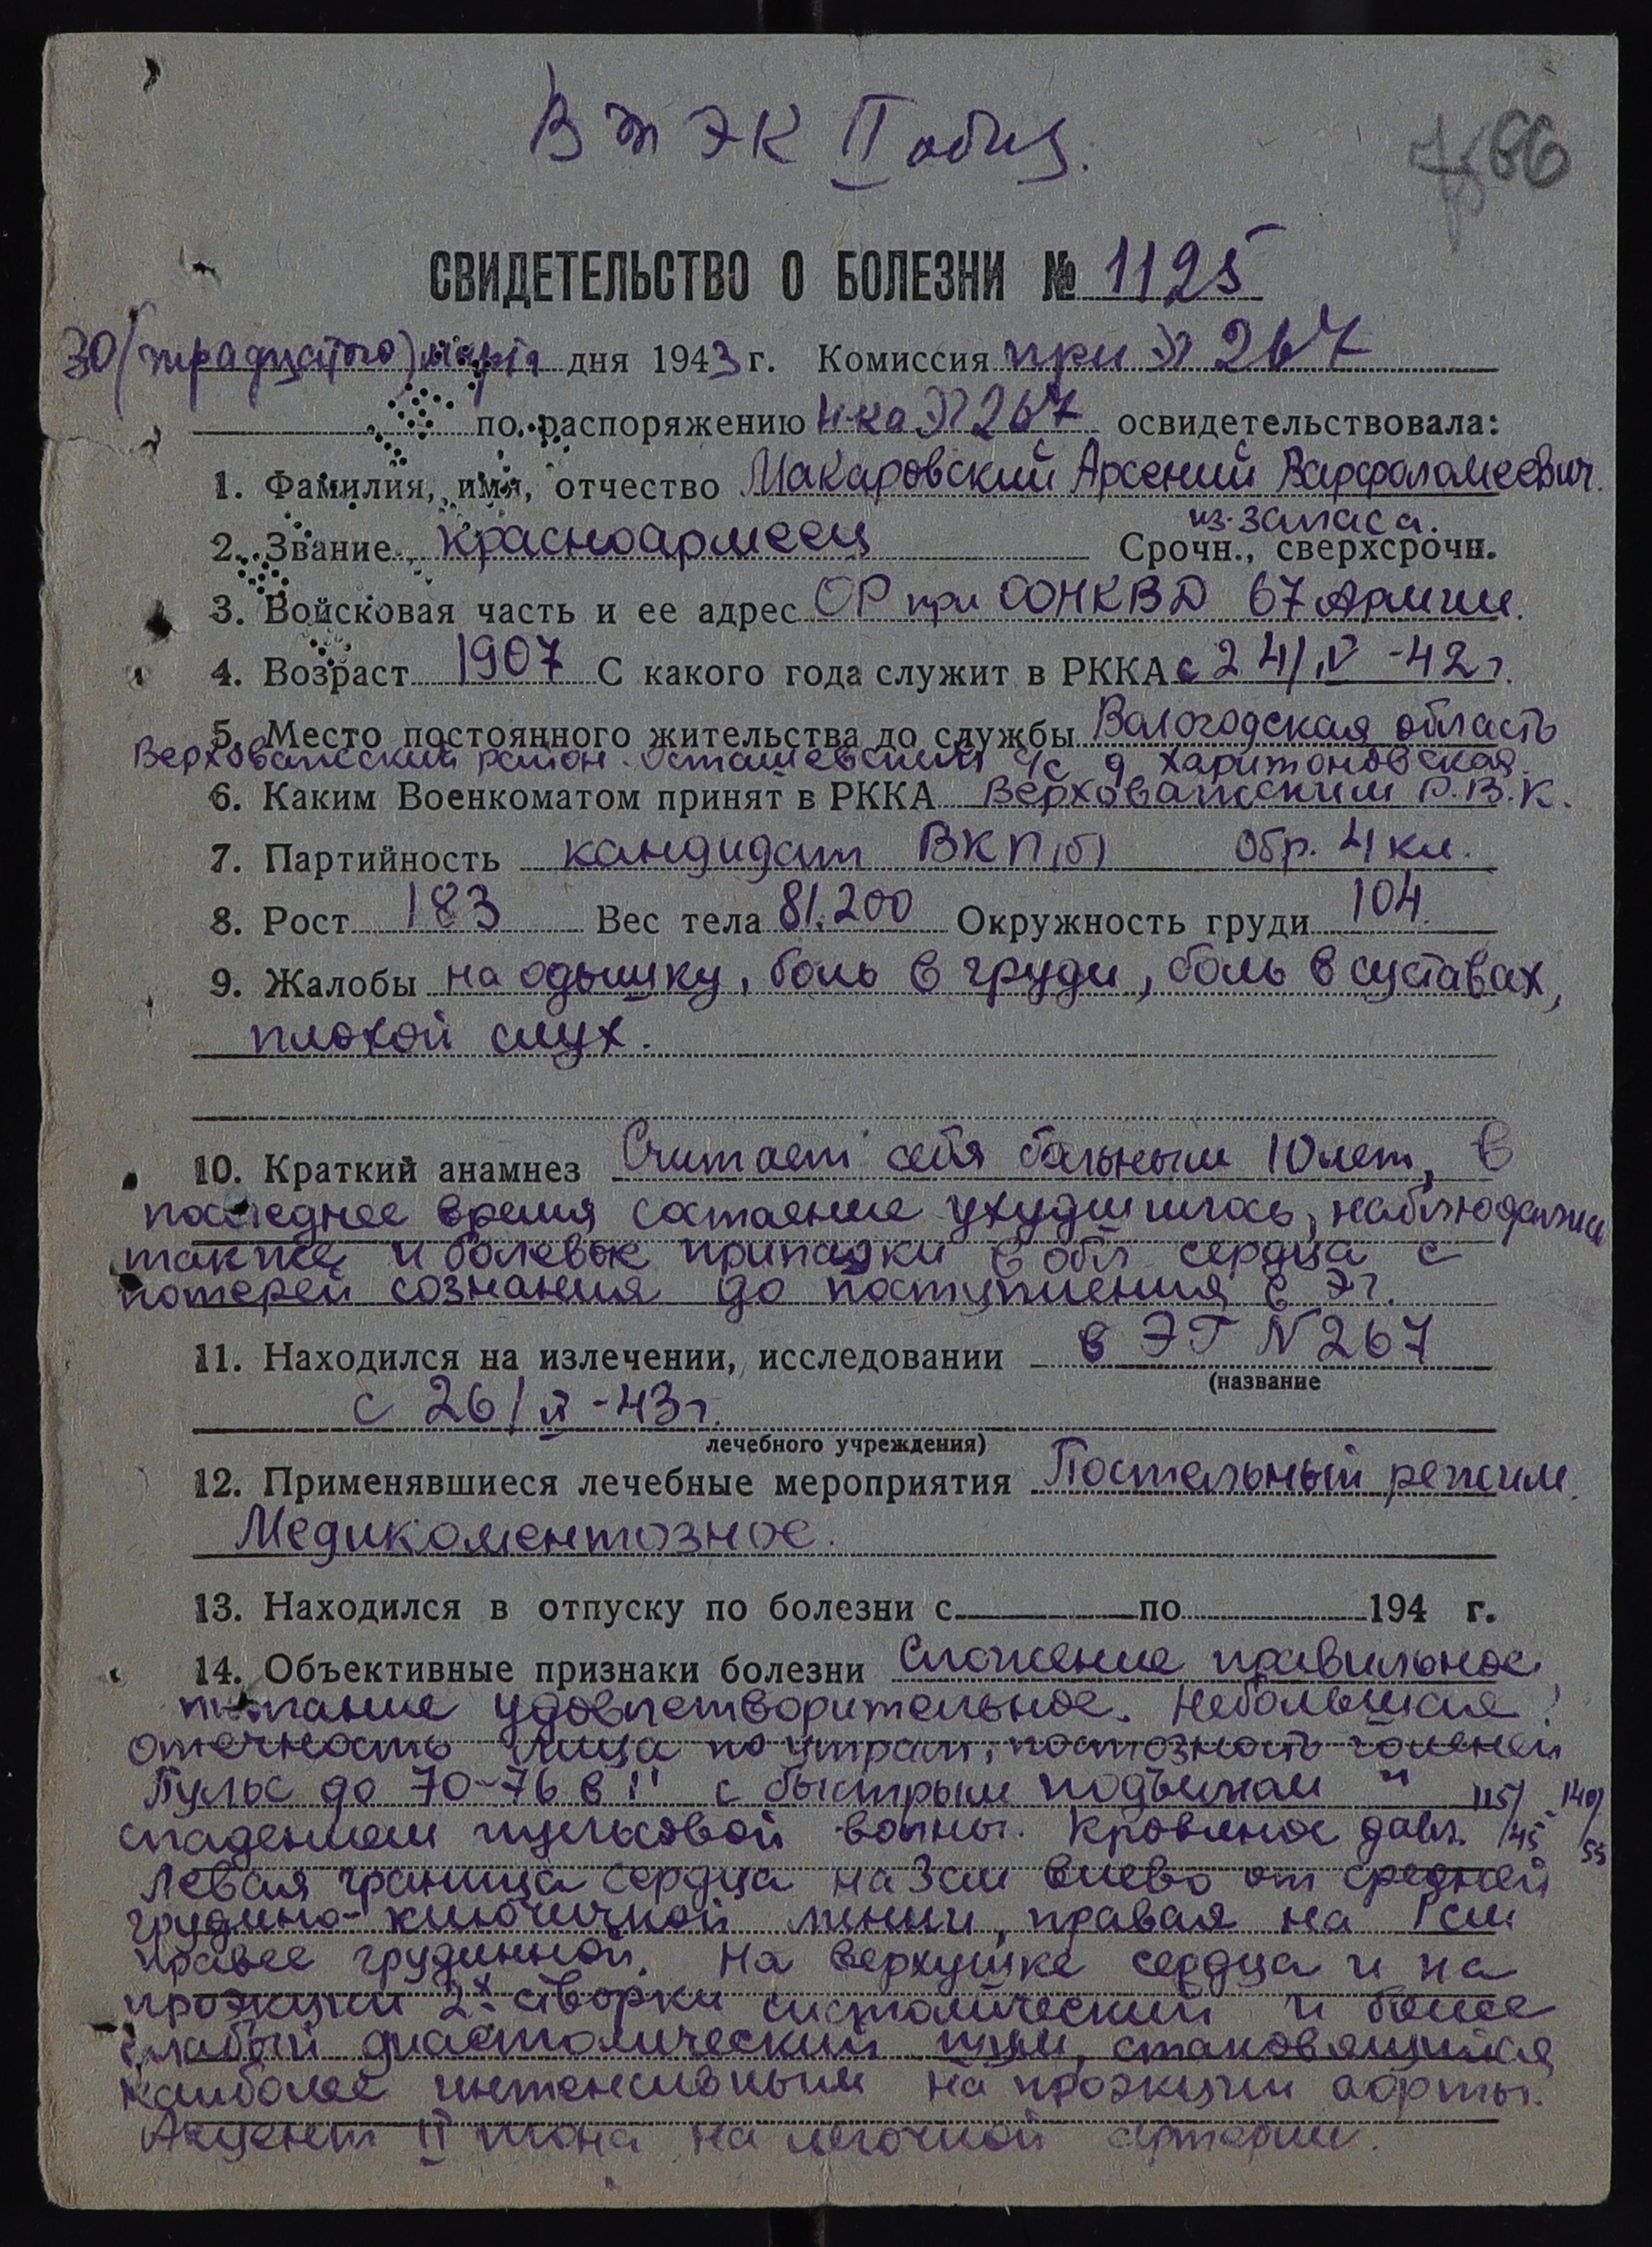 ВТЭК II общ.
66
СВИДЕТЕЛЬСТВО О БОЛЕЗНИ № 1125
30 (тридцатого) марта дня 1943 г. Комиссия при ЭГ 267
по распоряжению Н-ка ЭГ 267 освидетельствовала:
1. Фамилия, имя, отчество Макаровский Арсений Варфоломеевич.
из запаса.
2. Звание красноармеец Срочн., сверхсрочн.
3. Войсковая часть и ее адрес ОР при ООНКВД 67 Армии.
4. Возраст 1907 С какого года служит в РККА с 24/IV-42 г.
5. Место постоянного жительства до службы Вологодская область
Верховажский район. Осташевский с/с д Харитоновская.
6. Каким Военкоматом принят в РККА Верховажским Р.В.К.
7. Партийность кандидат ВКП(б) Обр. 4 кл.
8. Рост 183 Вес тела 81.200 Окружность груди 104.
9. Жалобы на одышку, боль в груди, боль в суставах,
плохой слух.
10. Краткий анамнез Считает себя больным 10 лет, в
последнее время состоение ухудшилось, наблюдались
также и болевые припадки в обл сердца с
потерей сознания до поступления в ЭГ.
11. Находился на излечении, исследовании в ЭГ N 267
(название
с 26/II-43 г.
лечебного учреждения)
12. Применявшиеся лечебные мероприятия Постельный режим.
Медикоментозное.
13. Находился в отпуску по болезни с по 194 г.
14. Объективные признаки болезни Сложение правильное
питание удовлетворительное. Небольшая
отечность лица по утрам, постозность голеней
Пульс до 70-76 в 1" с быстрым подъемом и 115/45 - 140/55
спадением пульсовой волны. Кровяное давл.
Левая граница сердца на 3 см влево от средней
грудино-ключичной линии, правая на 1 см
правее грудинной. На верхушке сердца и на
проэкции 2х створки систолический и более
слабый диастолический шум, становящийся
наиболее интенсивным на проэкции аорты.
Акцент II тона на легочной артерии.